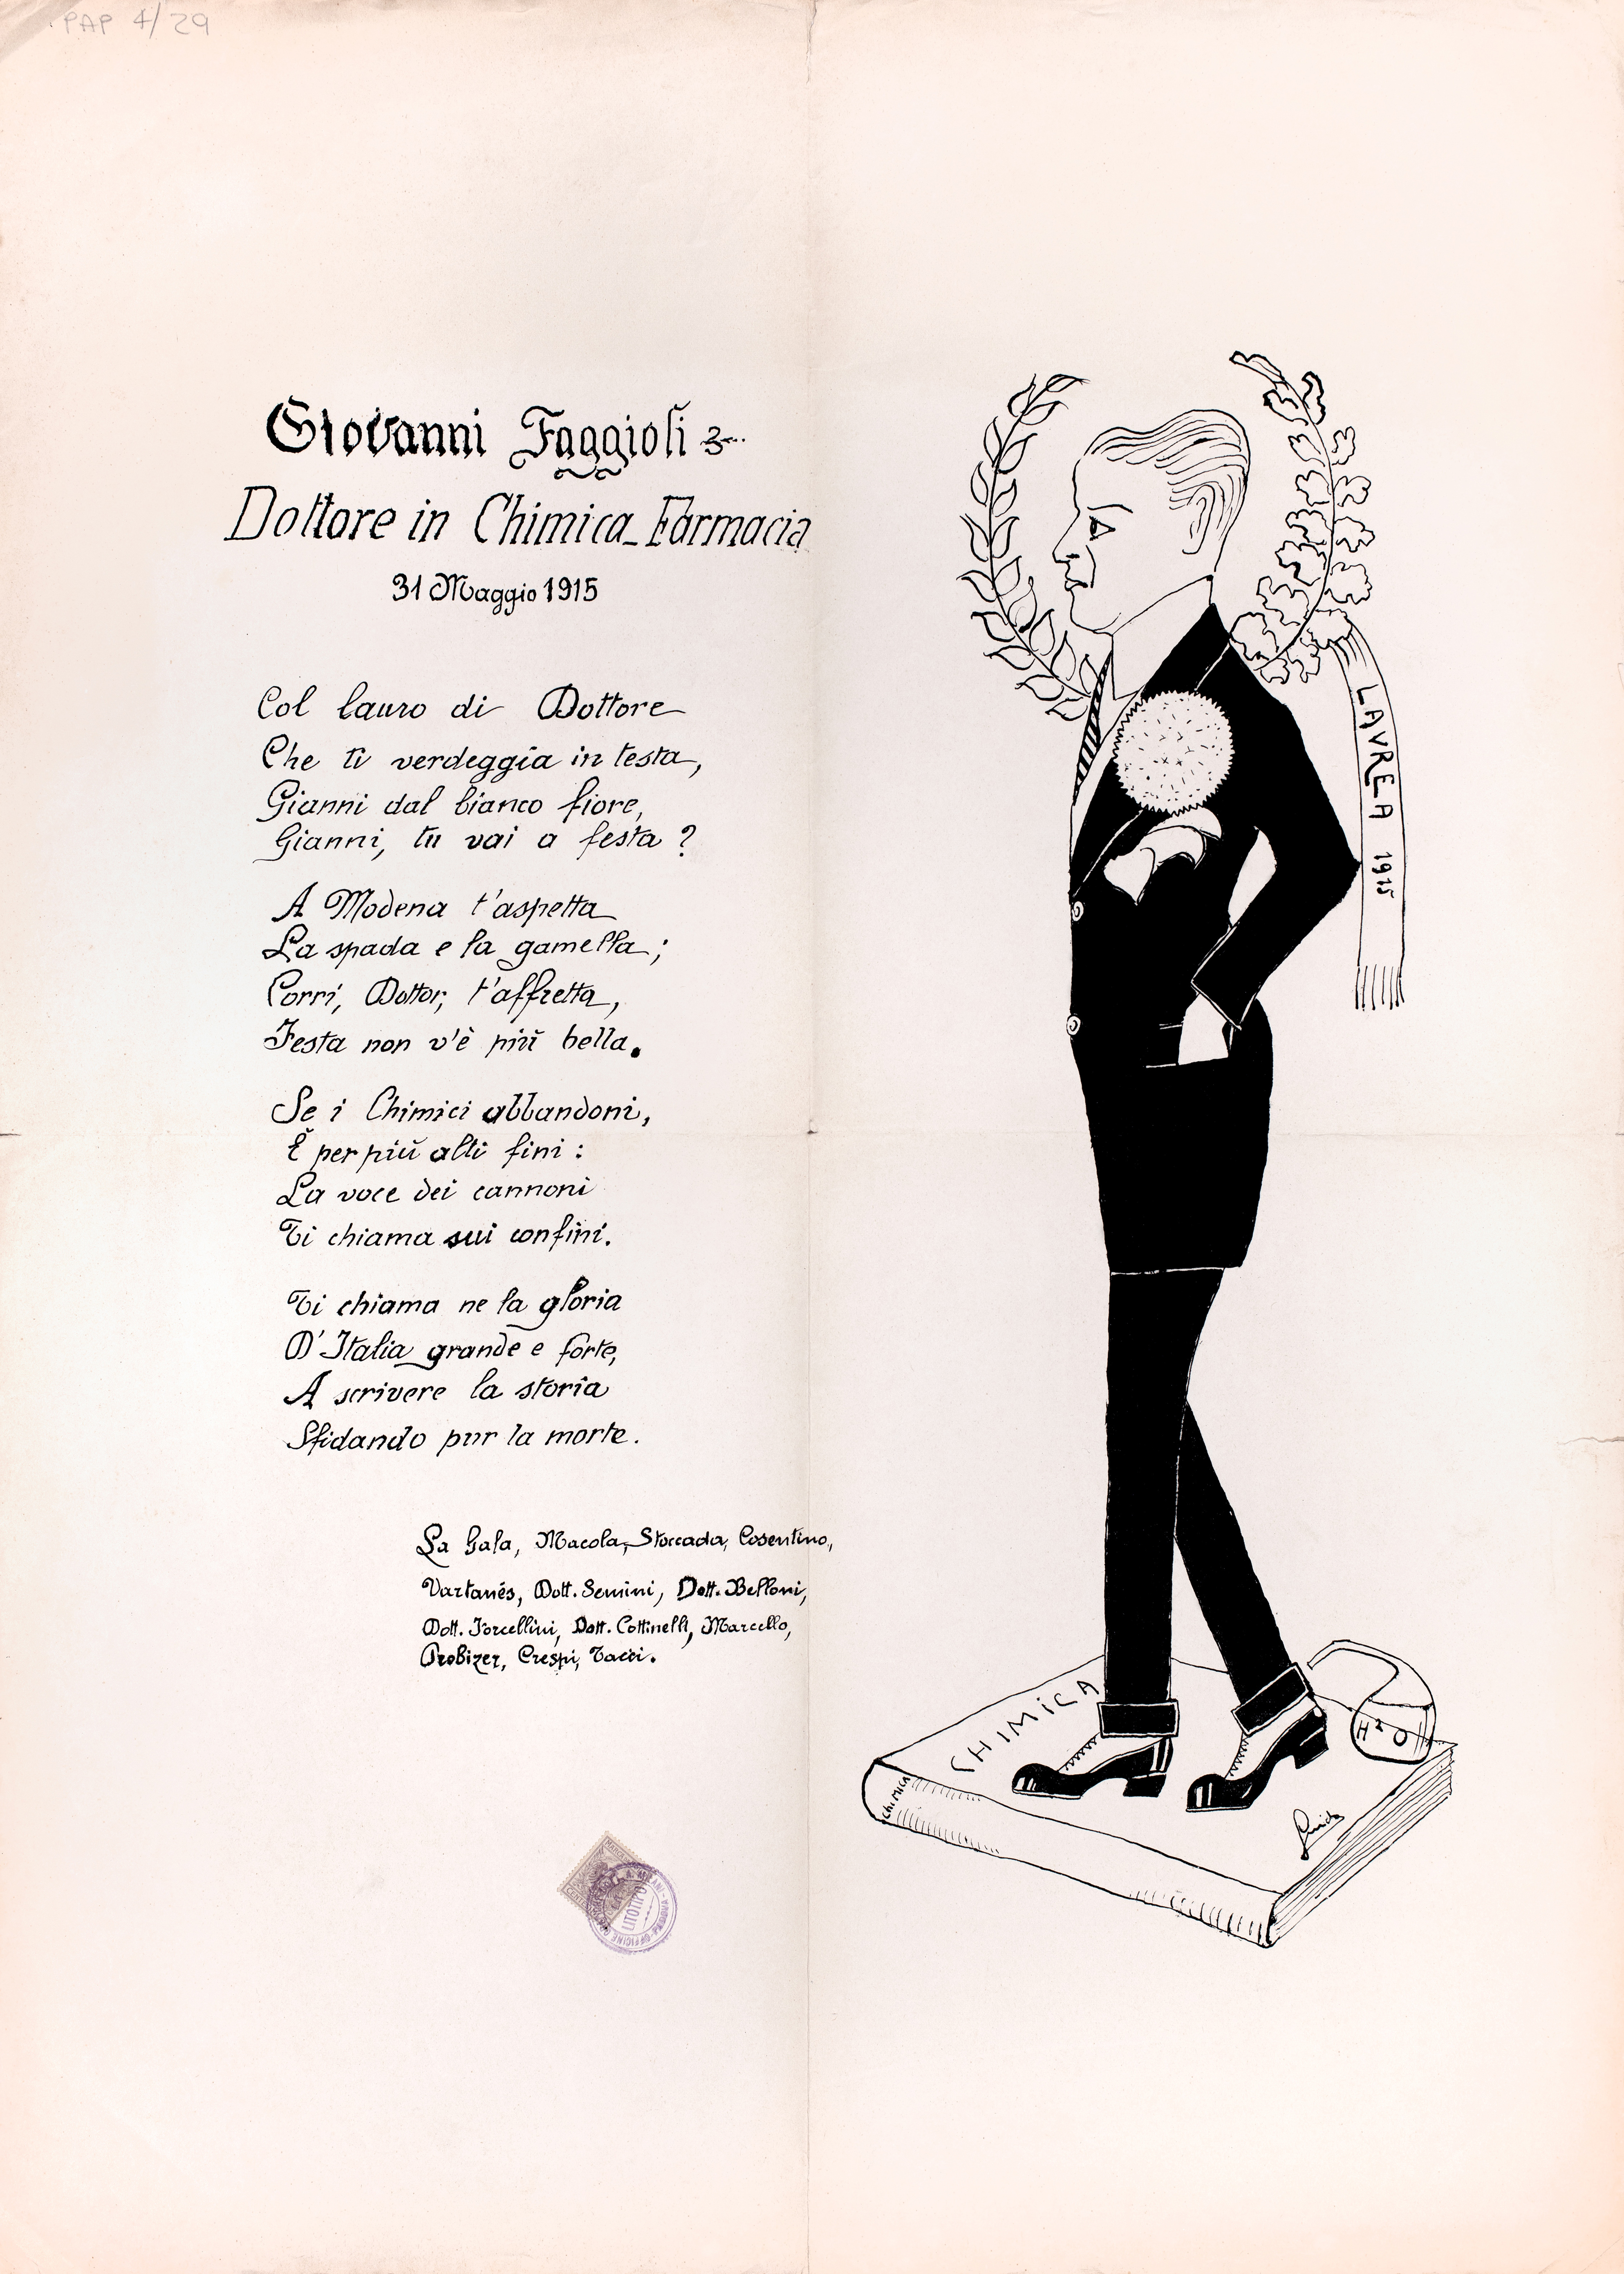 PAP 4/29
Giovanni Faggioli
Dottore in Chimica-Farmacia
31 Maggio 1915
Col lauro di Dottore
Che ti verdeggia in testa,
Gianni dal bianco fiore,
Gianni, tu vai a festa?
A Modena t'aspetta
La spada e la gamella;
Corri, Dottor, t'affretta,
Festa non v'è più bella.
Se i Chimici abbandoni,
È per più alti fini:
La voce dei cannoni
Ti chiama sui confini.
Ti chiama ne la gloria
D'Italia grande e forte,
A scrivere la storia
Sfidando pur la morte.
La Gala, Macola, Stoccada, Cosentino,
Vartanés, Dott. Semini, Dott. Belloni,
Dott. Forcellini, Dott. Cottinelli, Marcello,
Probizer, Crespi, Tacci.
LAVREA 1915
CHIMICA
CHIMICA
H2O
Guido
LITOTIPO